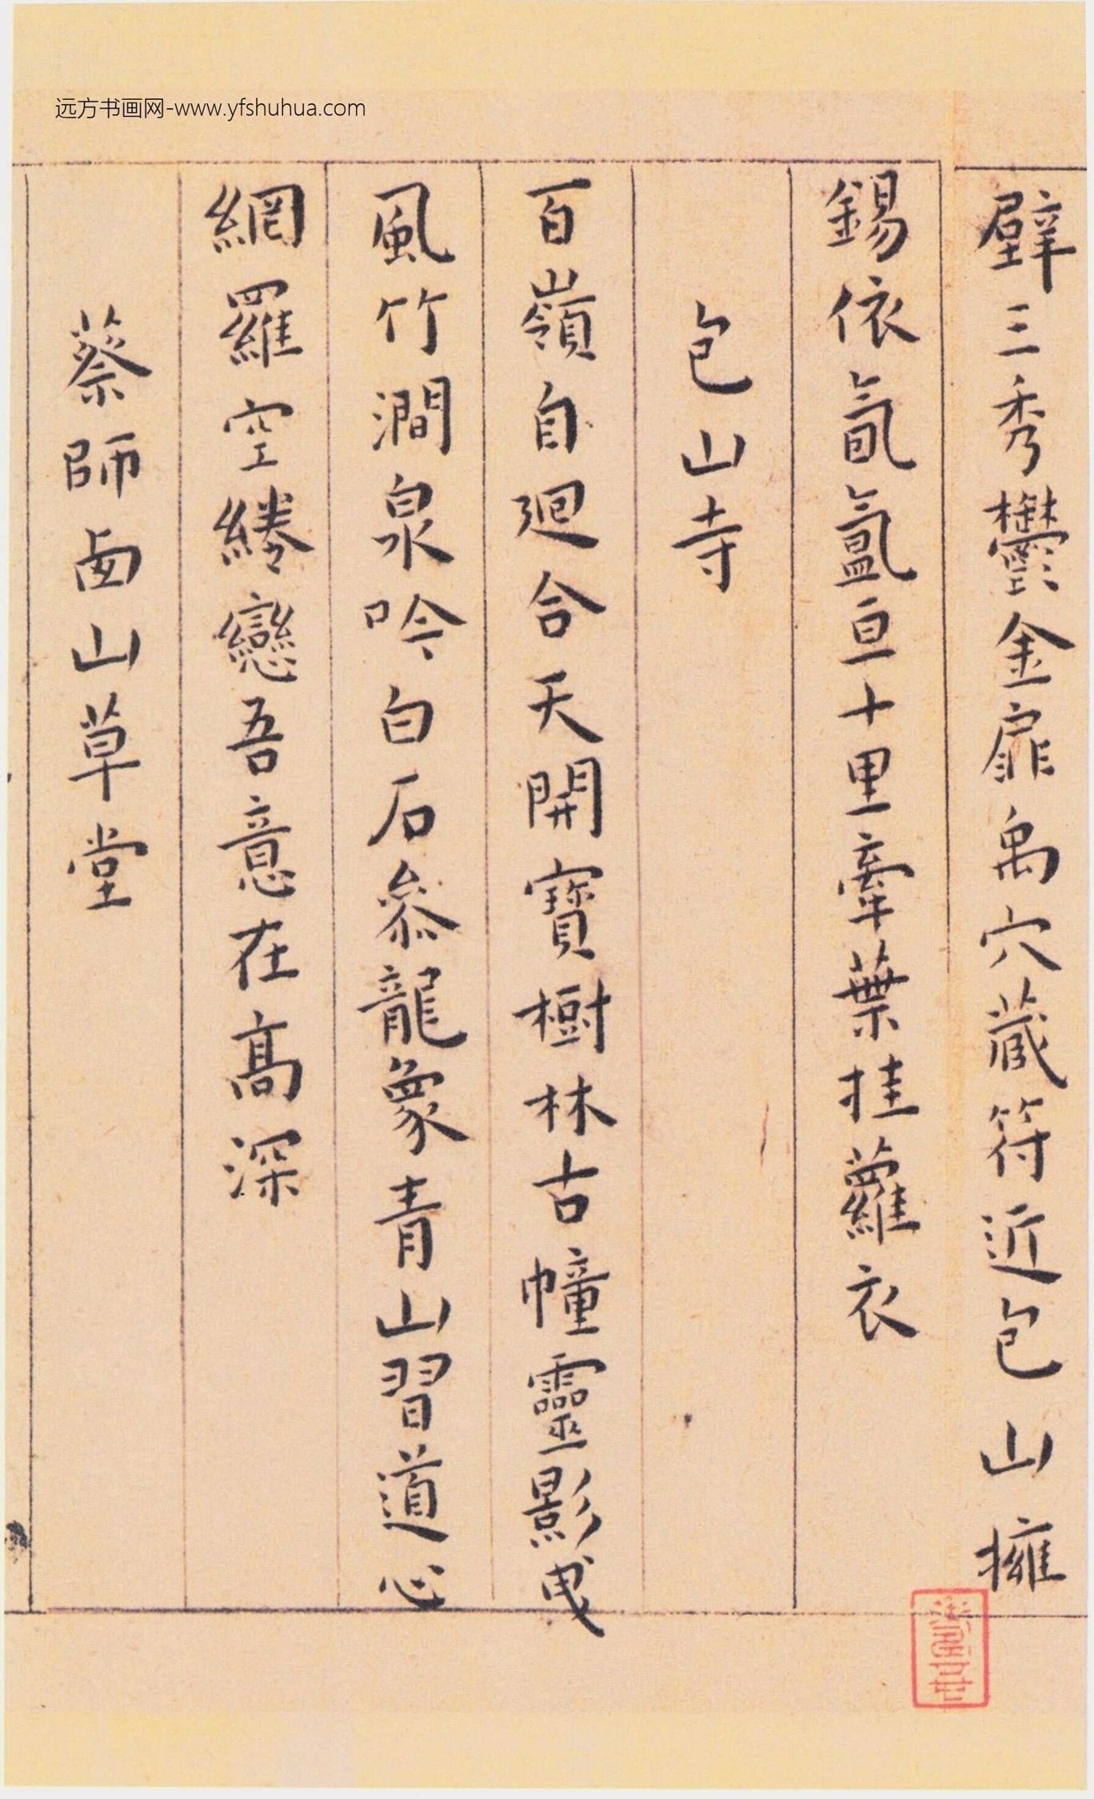 远方书画网-www.yfshuhua.com
壁三秀鬱金扉禹穴蔵符近包山擁
錫依氤氳亘十里牽葉挂蘿衣
包山寺
百嶺自迴合天開寶樹林古幢靈影曵
風竹澗泉吟白石叅龍象青山習道心
網羅空綣戀吾意在髙深
蔡師西山草堂